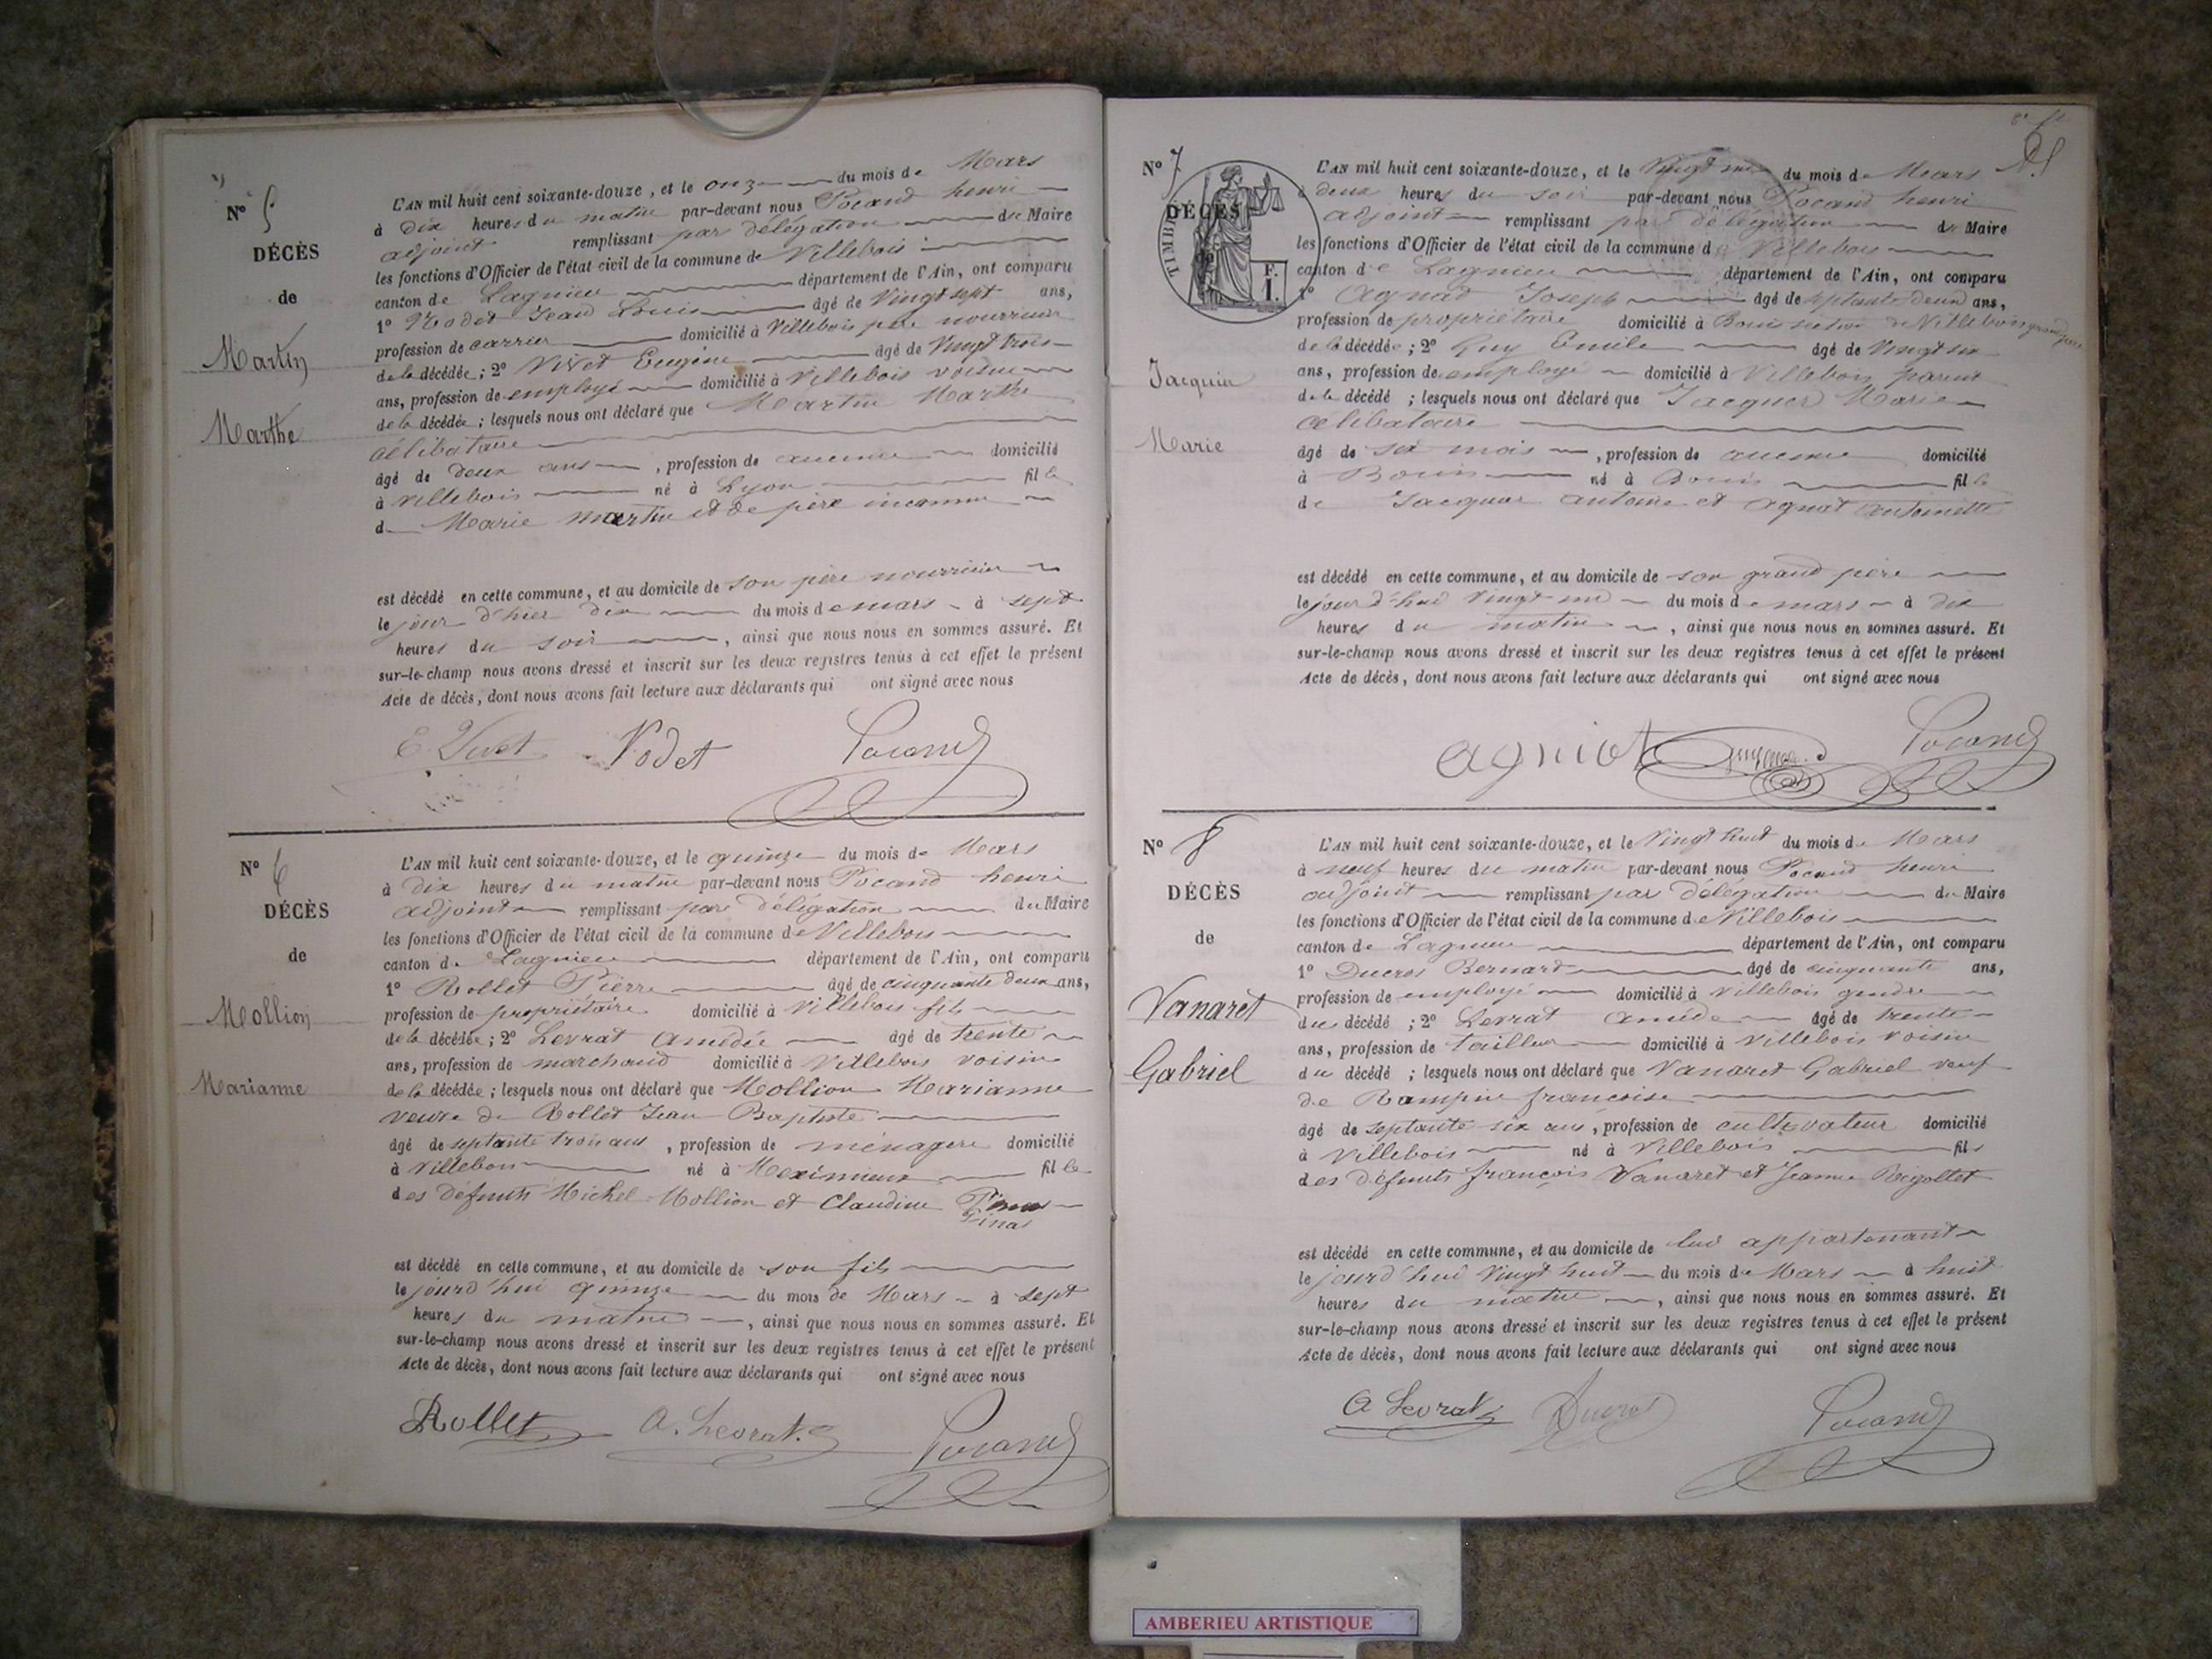 Nº 5
DÉCÈS
de
Martin
Marthe
L'AN mil huit cent soixante-douze, et le onze du mois de Mars
à dix heures du matin par-devant nous Pocand henri
adjoint remplissant par délégation du Maire
les fonctions d'Officier de l'état civil de la commune de Villebois
canton de Lagnieu département de l'Ain, ont comparu
1º Vodet Jean Louis âgé de Vingt sept ans,
profession de carrier domicilié à Villebois père nourricier
de la décédée ; 2º Vivet Eugène âgé de Vingt trois
ans, profession de employé domicilié à Villebois voisin
de la décédée ; lesquels nous ont déclaré que Martin Marthe
célibataire
âgé de deux ans, profession de aucune domicilié
à Villebois né à Lyon fille
de Marie Martin et de père inconnu
est décédé en cette commune, et au domicile de son père nourricier
le jour d'hier dix du mois de mars à sept
heures du soir, ainsi que nous nous en sommes assuré. Et
sur-le-champ nous avons dressé et inscrit sur les deux registres tenus à cet effet le présent
Acte de décès, dont nous avons fait lecture aux déclarants qui ont signé avec nous
E. Vivet Vodet Pocand
Nº 6
DÉCÈS
de
Mollion
Marianne
L'AN mil huit cent soixante-douze, et le quinze du mois de Mars
à dix heures du matin par-devant nous Pocand henri
adjoint remplissant par délégation du Maire
les fonctions d'Officier de l'état civil de la commune de Villebois
canton de Lagnieu département de l'Ain, ont comparu
1º Rollet Pierre âgé de cinquante deux ans,
profession de propriétaire domicilié à Villebois fils
de la décédée ; 2º Levrat Amédée âgé de trente
ans, profession de marchand domicilié à Villebois voisin
de la décédée ; lesquels nous ont déclaré que Mollion Marianne
veuve de Rollet Jean Baptiste
âgé de septante trois ans, profession de ménagère domicilié
à Villebois né à Meximieux fille
des défunts Michel Mollion et Claudine
Pinas
est décédé en cette commune, et au domicile de son fils
le jourd'hui quinze du mois de Mars à sept
heures du matin, ainsi que nous nous en sommes assuré. Et
sur-le-champ nous avons dressé et inscrit sur les deux registres tenus à cet effet le présent
Acte de décès, dont nous avons fait lecture aux déclarants qui ont signé avec nous
Rollet A. Levrat Pocand
Nº 7
TIMBRE
DÉCÈS
de
F.
1.
Jacquin
Marie
L'AN mil huit cent soixante-douze, et le Vingt un du mois de Mars
à deux heures du soir par-devant nous Pocand henri
adjoint remplissant par délégation du Maire
les fonctions d'Officier de l'état civil de la commune de Villebois
canton de Lagnieu département de l'Ain, ont comparu
1º Agnat Joseph âgé de septante deux ans,
profession de propriétaire domicilié à Bouis section de Villebois grand père
de la décédée ; 2º Guy Emile âgé de Vingt six
ans, profession de employé domicilié à Villebois parent
de la décédé ; lesquels nous ont déclaré que Jacquer Marie
célibataire
âgé de six mois, profession de aucune domicilié
à Bouis né à Bouis fille
de Jacquer antoine et Agnat antoinette
est décédé en cette commune, et au domicile de son grand père
le jourd'hui Vingt un du mois de mars à dix
heures du matin, ainsi que nous nous en sommes assuré. Et
sur-le-champ nous avons dressé et inscrit sur les deux registres tenus à cet effet le présent
Acte de décès, dont nous avons fait lecture aux déclarants qui ont signé avec nous
agniot Pocand
Nº 8
DÉCÈS
de
Vanaret
Gabriel
L'AN mil huit cent soixante-douze, et le Vingt huit du mois de Mars
à neuf heures du matin par-devant nous Pocand henri
adjoint remplissant par délégation du Maire
les fonctions d'Officier de l'état civil de la commune de Villebois
canton de Lagnieu département de l'Ain, ont comparu
1º Ducros Bernard âgé de cinquante ans,
profession de employé domicilié à Villebois gendre
du décédé ; 2º Levrat Amédé âgé de trente
ans, profession de tailleur domicilié à Villebois voisin
du décédé ; lesquels nous ont déclaré que Vanaret Gabriel veuf
de Rampin françoise
âgé de septante six ans, profession de cultivateur domicilié
à Villebois né à Villebois fils
des défunts françois Vanaret et Jeanne Rigollet
est décédé en cette commune, et au domicile de lui appartenant
le jourd'hui Vingt huit du mois de Mars à huit
heures du matin, ainsi que nous nous en sommes assuré. Et
sur-le-champ nous avons dressé et inscrit sur les deux registres tenus à cet effet le présent
Acte de décès, dont nous avons fait lecture aux déclarants qui ont signé avec nous
A Levrat Ducros Pocand
AMBERIEU ARTISTIQUE